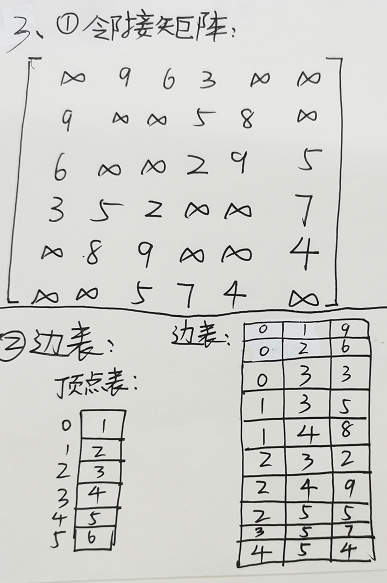 3、①邻接矩阵：
∞ 9 6 3 ∞ ∞
9 ∞ ∞ 5 8 ∞
6 ∞ ∞ 2 9 5
3 5 2 ∞ ∞ 7
∞ 8 9 ∞ ∞ 4
∞ ∞ 5 7 4 ∞
②边表：
顶点表：
0 1
1 2
2 3
3 4
4 5
5 6
边表：
0 1 9
0 2 6
0 3 3
1 3 5
1 4 8
2 3 2
2 4 9
2 5 5
3 5 7
4 5 4